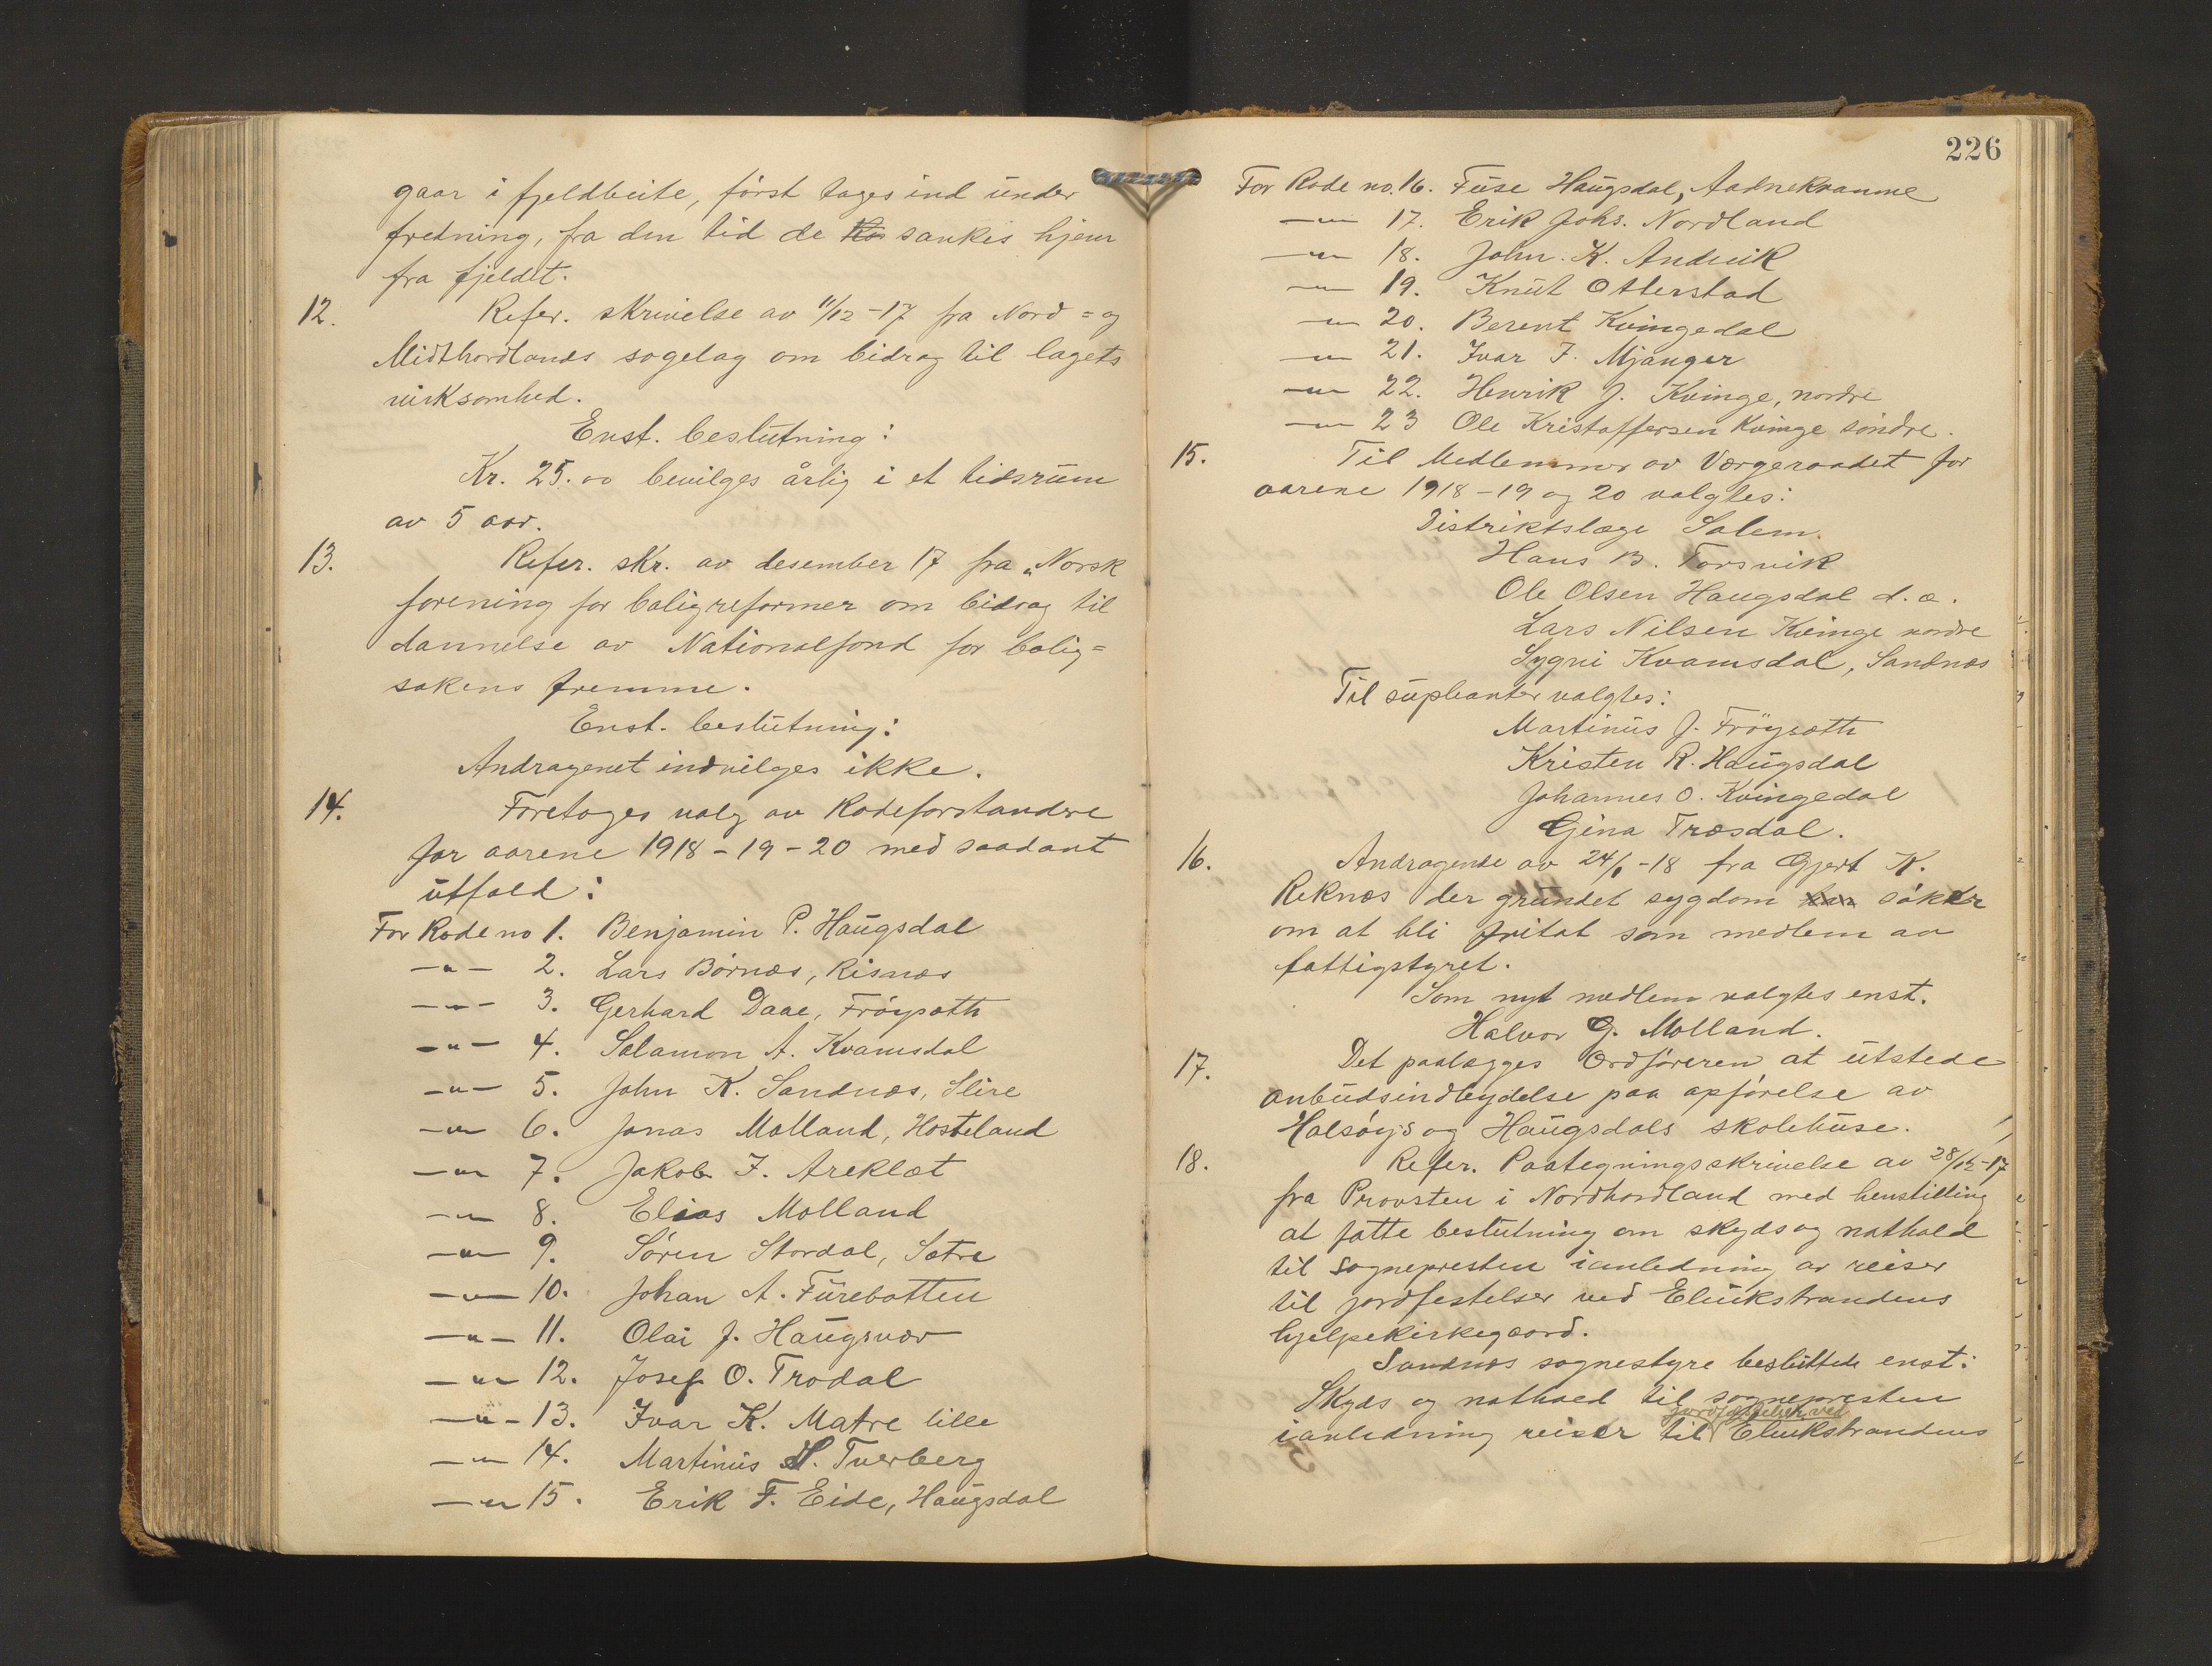 gaar i fjeldbeite, först tages ind under
fredning, fra den tid de sankes hjem
fra fjeldet.
12. Refer. skrivelse av 11/12-17 fra Nord= og
Midthordlands sogelag om bidrag til lagets
virksomhed.
Enst. beslutning:
Kr. 25.00 bevilges årlig i et tidsrum
av 5 aar.
13. Refer. skr. av desember 17 fra „Norsk
forening for boligreformer om bidrag til
dannelse av Nationalfond for bolig=
sakens fremme.
Enst. beslutning:
Andragenet indvilges ikke.
14. Foretoges valg av Rodeforstandere
for aarene 1918-19-20 med saadant
utfald:
For Rode no 1. Benjamin P. Haugsdal
-"- 2. Lars Börnes, Risnes
-"- 3. Gerhard Daae, Fröysæth
-"- 4. Salamon A. Kvamsdal
-"- 5. John K. Sandnæs, Slire
-"- 6. Jonas Molland, Hosteland
-"- 7. Jakob I. Areklæt
-"- 8. Elias Molland
-"- 9. Sören Stordal, Sætre
-"- 10. Johan A. Furebotten
-"- 11. Olai J. Haugsvær
-"- 12. Josef O. Trodal
-"- 13. Ivar K. Matre lille
-"- 14. Martinus H. Tverberg
-"- 15. Erik F. Eide, Haugsdal
226
For Rode no. 16. Fuse Haugsdal, Aadnekvamme
-"- 17. Erik Johs. Nordland
-"- 18. John. K. Andvik
-"- 19. Knut Otterstad
-"- 20. Berent Kvingedal
-"- 21. Ivar I. Mjanger
-"- 22. Henrik J. Kvinge, nordre
-"- 23 Ole Kristoffersen Kvinge söndre.
15. Til Medlemmer av Værgeraadet for
aarene 1918-19 og 20 valgtes:
Distriktslæge Salem.
Hans B. Torsvik
Ole Olsen Haugsdal d.æ.
Lars Nilsen Kvinge nordre
Sygni Kvamsdal, Sandnæs
Til supleanter valgtes:
Martinus J. Fröysæth
Kristen R. Haugsdal
Johannes O. Kvingedal
Gjina Træsdal.
16. Andragende av 24/1-18 fra Gjert K.
Reknæs der grundet sygdom söker
om at bli fritat som medlem av
fattigstyret.
Som nyt medlem valgtes enst.
Halvor G. Molland.
17. Det paalægges Ordföreren at utstede
anbudsindbydelse paa opförelse av
Halsöys og Haugsdals skolehuse.
18. Refer. Paategningsskrivelse av 28/12-17
fra Provsten i Nordhordland med henstilling
at fatte beslutning om skyds og nathold
til sognepresten ianledning av reiser
til jordfestelser ved Elvikstrandens
hjelpekirkegaard.
Sandnæs sognestyre besluttede enst:
Skyds og nathold til sognepresten
jordfestelser ved
ianledning reiser til Elvikstrandens